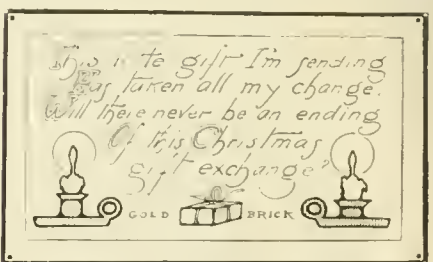 This is te gift I'm sending
Has taken all my change.
Will there never be an ending
Of this Christmas
gift exchange?
GOLD BRICK